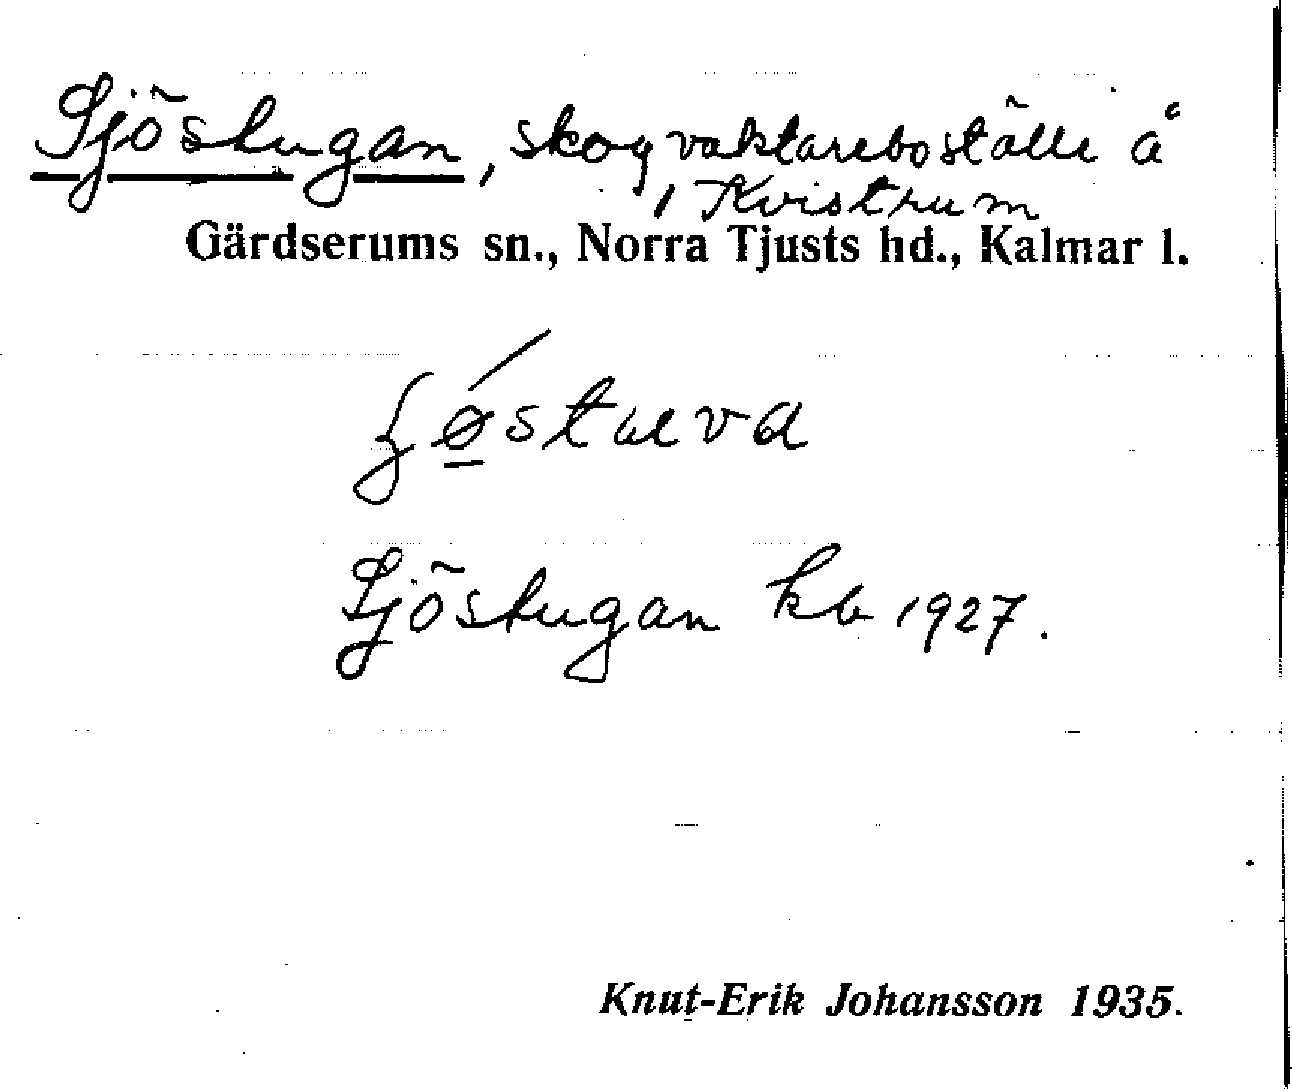 Sjöstugan, skogvaktareboställe å
, Kvistrum
Gärdserums sn., Norra Tjusts hd., Kalmar l.
Sjöstugan kb 1927.
Knut-Erik Johansson 1935.